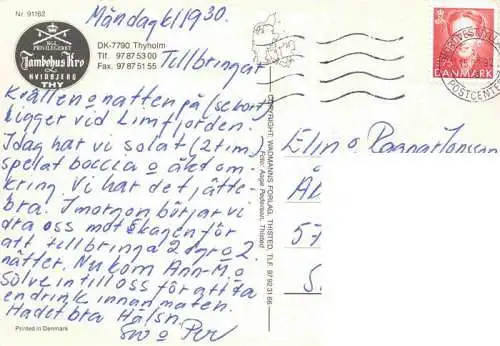 Nr. 91162
Måndag kl 19 30.
KGL.
PRIVILEGERET
Tambohus Kro
HVIDBJERG
THY
DK-7790 Thyholm
Tlf. 97 87 53 00
Fax. 97 87 51 55
Tillbringar
kvällen o natten på (se kort)
ligger vid Limfjorden.
Idag har vi solat (2 tim)
spelat boccia o åkt om-
kring. Vi har det jätte-
bra. I morgon börjar vi
dra oss mot Skagen för
att tillbringa 2 dgr o 2
nätter. Nu kom Ann-M o
Sölve in till oss för att ta
en drink innan maten.
Ha det bra Hälsn.
o Per
Printed in Denmark
COPYRIGHT: WADMANNS FORLAG, THISTED. TLF. 97 92 31 66
Foto: Aage Pedersen, Thisted
DANMARK
POSTCENTER
Elin o Ragnar Jonsson
57
S